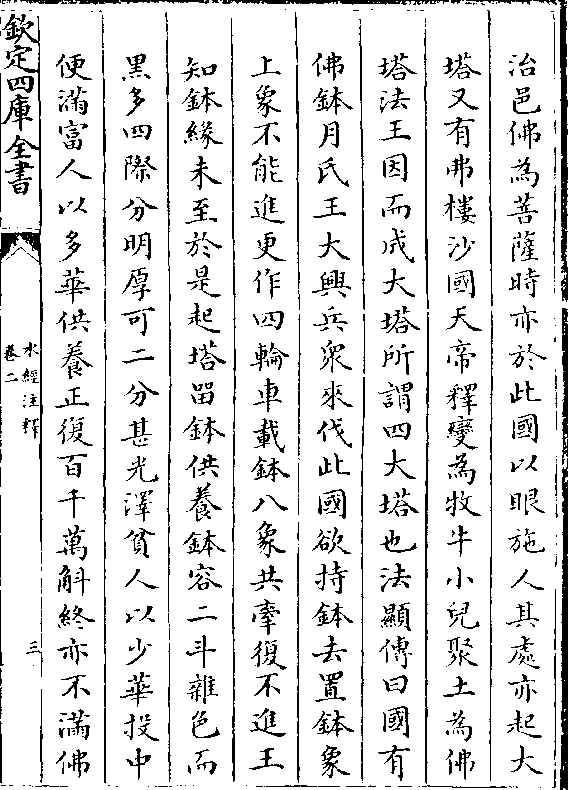 治邑佛為菩薩時亦於此國以眼施人其處亦起大
塔又有弗樓沙國天帝釋變為牧牛小兒聚土為佛
塔法王因而成大塔所謂四大塔也法顯傳曰國有
佛鉢月氏王大興兵衆來伐此國欲持鉢去置鉢象
上象不能進更作四輪車載鉢八象共牽復不進王
知鉢緣未至於是起塔留鉢供養鉢容二斗雜色而
黑多四際分明厚可二分甚光澤貧人以少華投中
便滿富人以多華供養正復百千萬斛終亦不滿佛
欽定四庫全書
水經注釋
卷二
三